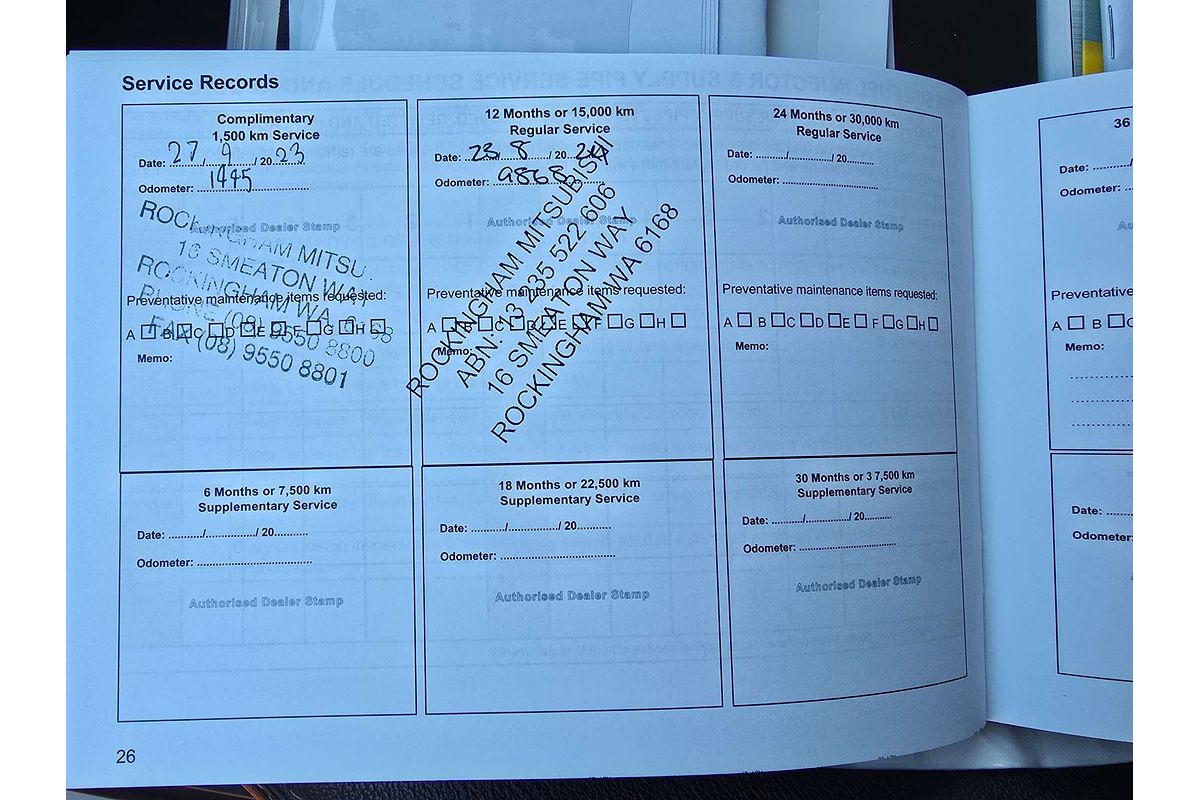 Service Records
Complimentary
1,500 km Service
Date: 27/9/2023
Odometer: 1445
Authorised Dealer Stamp
ROCKINGHAM MITSU
16 SMEATON WAY
ROCKINGHAM WA 6168
PHONE (08) 9550 8800
FAX (08) 9550 8801
Preventative maintenance items requested:
A B C D E F G H
Memo:
12 Months or 15,000 km
Regular Service
Date: 23/8/2024
Odometer: 9868
Authorised Dealer Stamp
ROCKINGHAM MITSUBISHI
ABN: 13 035 522 606
16 SMEATON WAY
ROCKINGHAM WA 6168
Preventative maintenance items requested:
A B C D E F G H
Memo:
24 Months or 30,000 km
Regular Service
Date: ........../............../ 20.........
Odometer: ................................
Authorised Dealer Stamp
Preventative maintenance items requested:
A B C D E F G H
Memo:
6 Months or 7,500 km
Supplementary Service
Date: .........../................/ 20..........
Odometer: ..................................
Authorised Dealer Stamp
18 Months or 22,500 km
Supplementary Service
Date: .........../................/ 20..........
Odometer: ..................................
Authorised Dealer Stamp
30 Months or 3 7,500 km
Supplementary Service
Date: ........../............../ 20.........
Odometer: ................................
Authorised Dealer Stamp
36
Date:
Odometer:
Preventative
A B C
Memo:
Date:
Odometer:
26